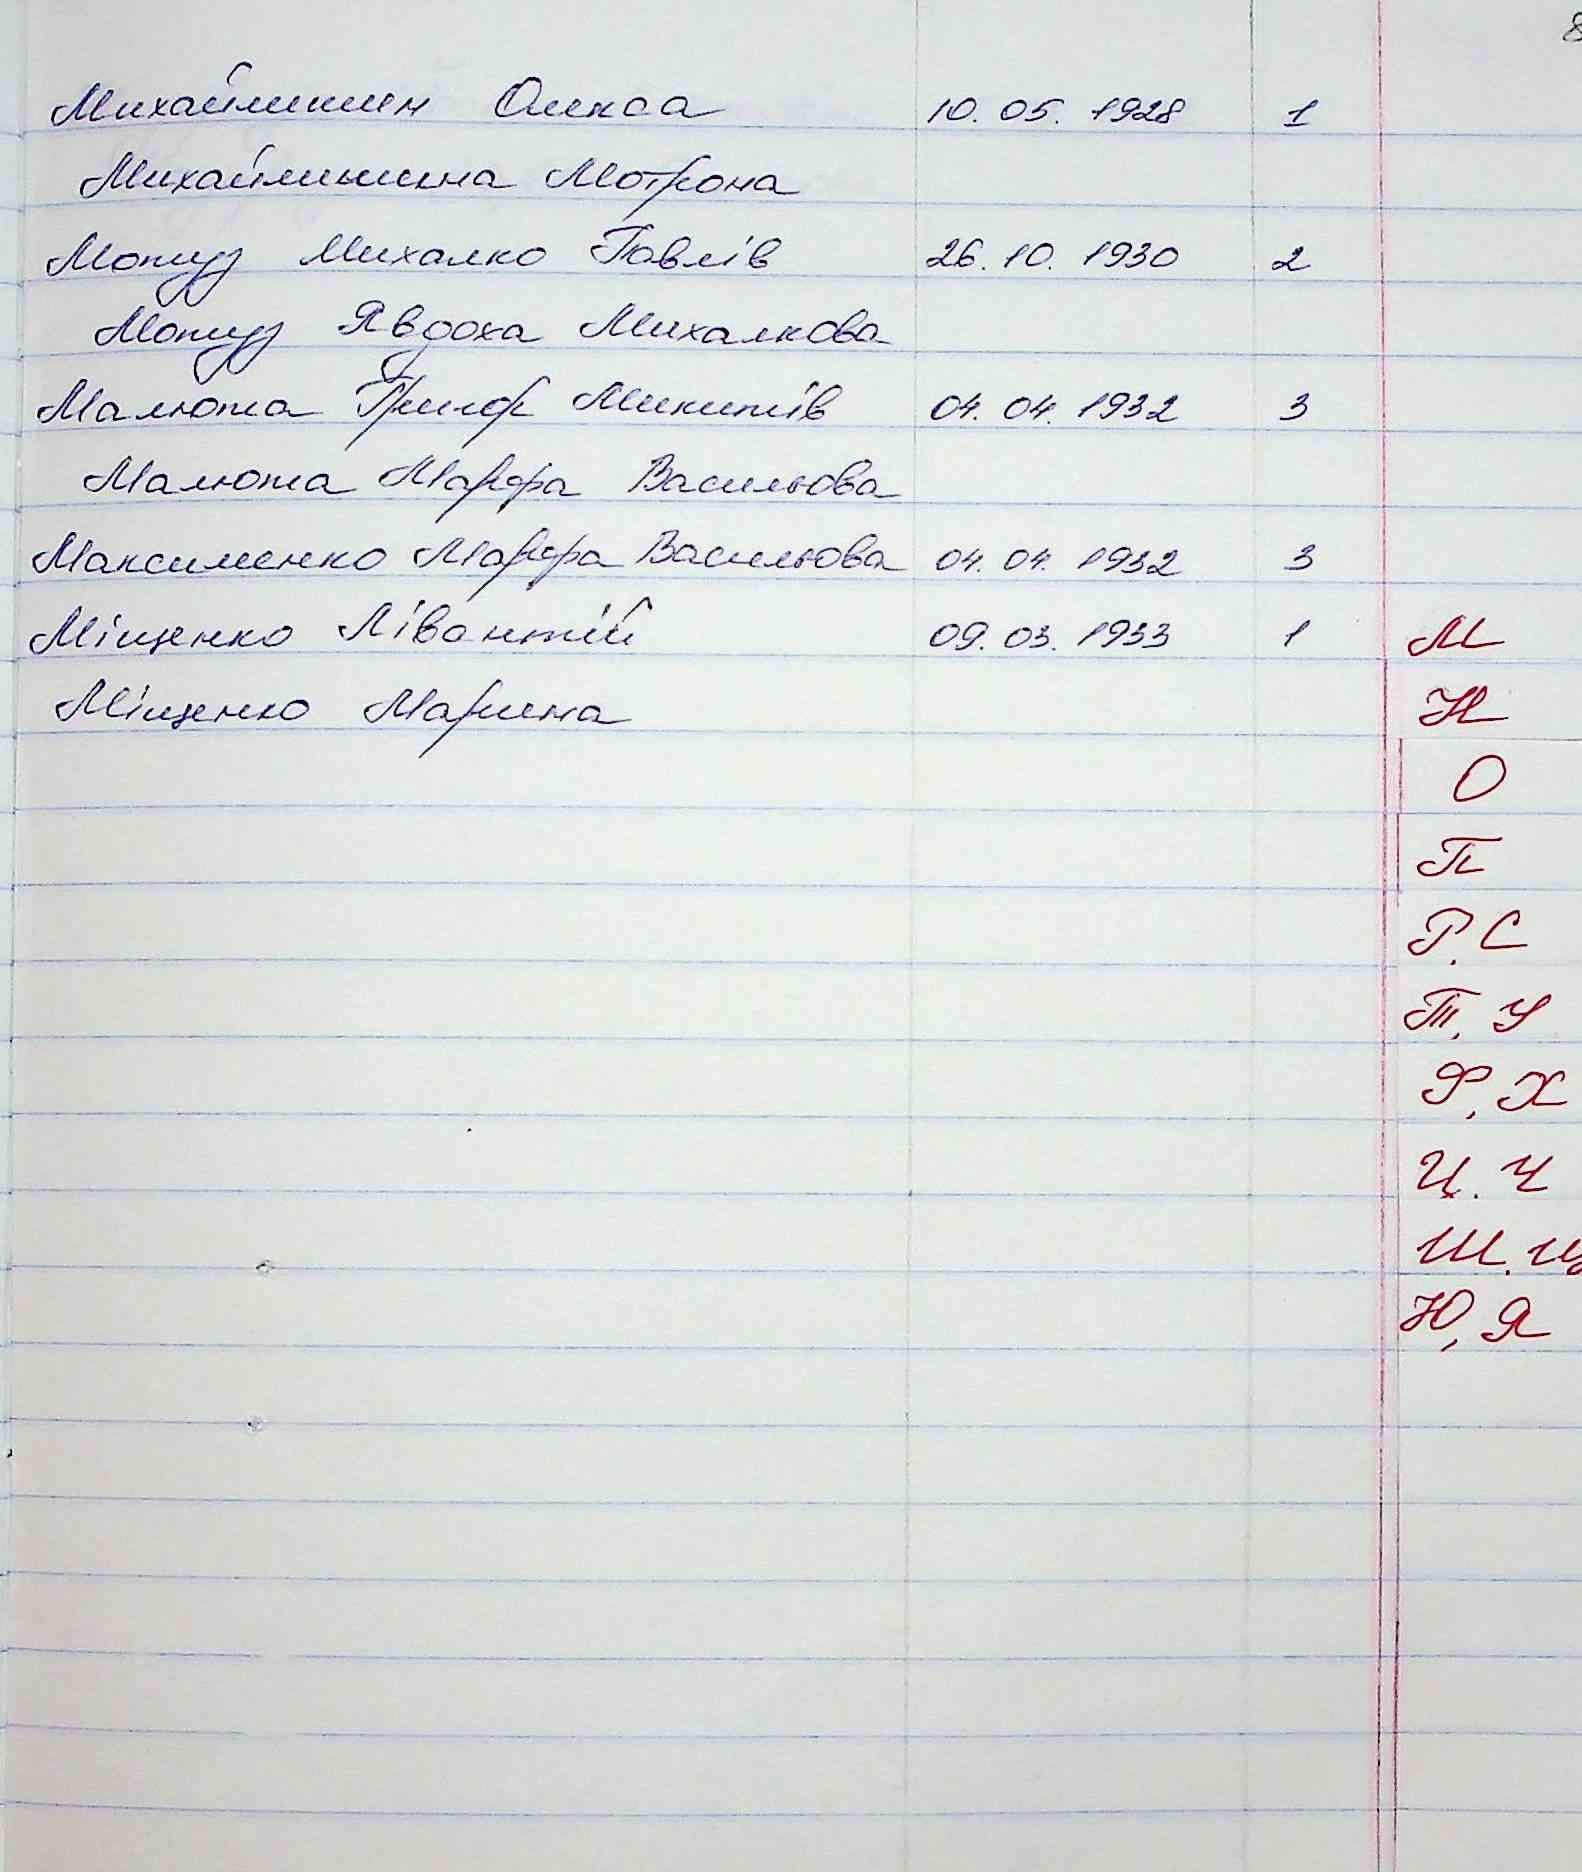 8
Михайлишин Олекса 10. 05. 1928 1
Михайлишина Мотрона
Мотуз Михалко Павлів 26. 10. 1930 2
Мотуз Явдоха Михалкова
Малюта Григор Микитів 04. 04. 1932 3
Малюта Марфа Васильова
Максименко Марфа Васильова 04. 04. 1932 3
Міщенко Лівонтій 09. 03. 1933 1 М
Міщенко Марина Н
О
П
Р, С
Т, У
Ф, Х
Ц, Ч
Ш, Щ
Ю, Я